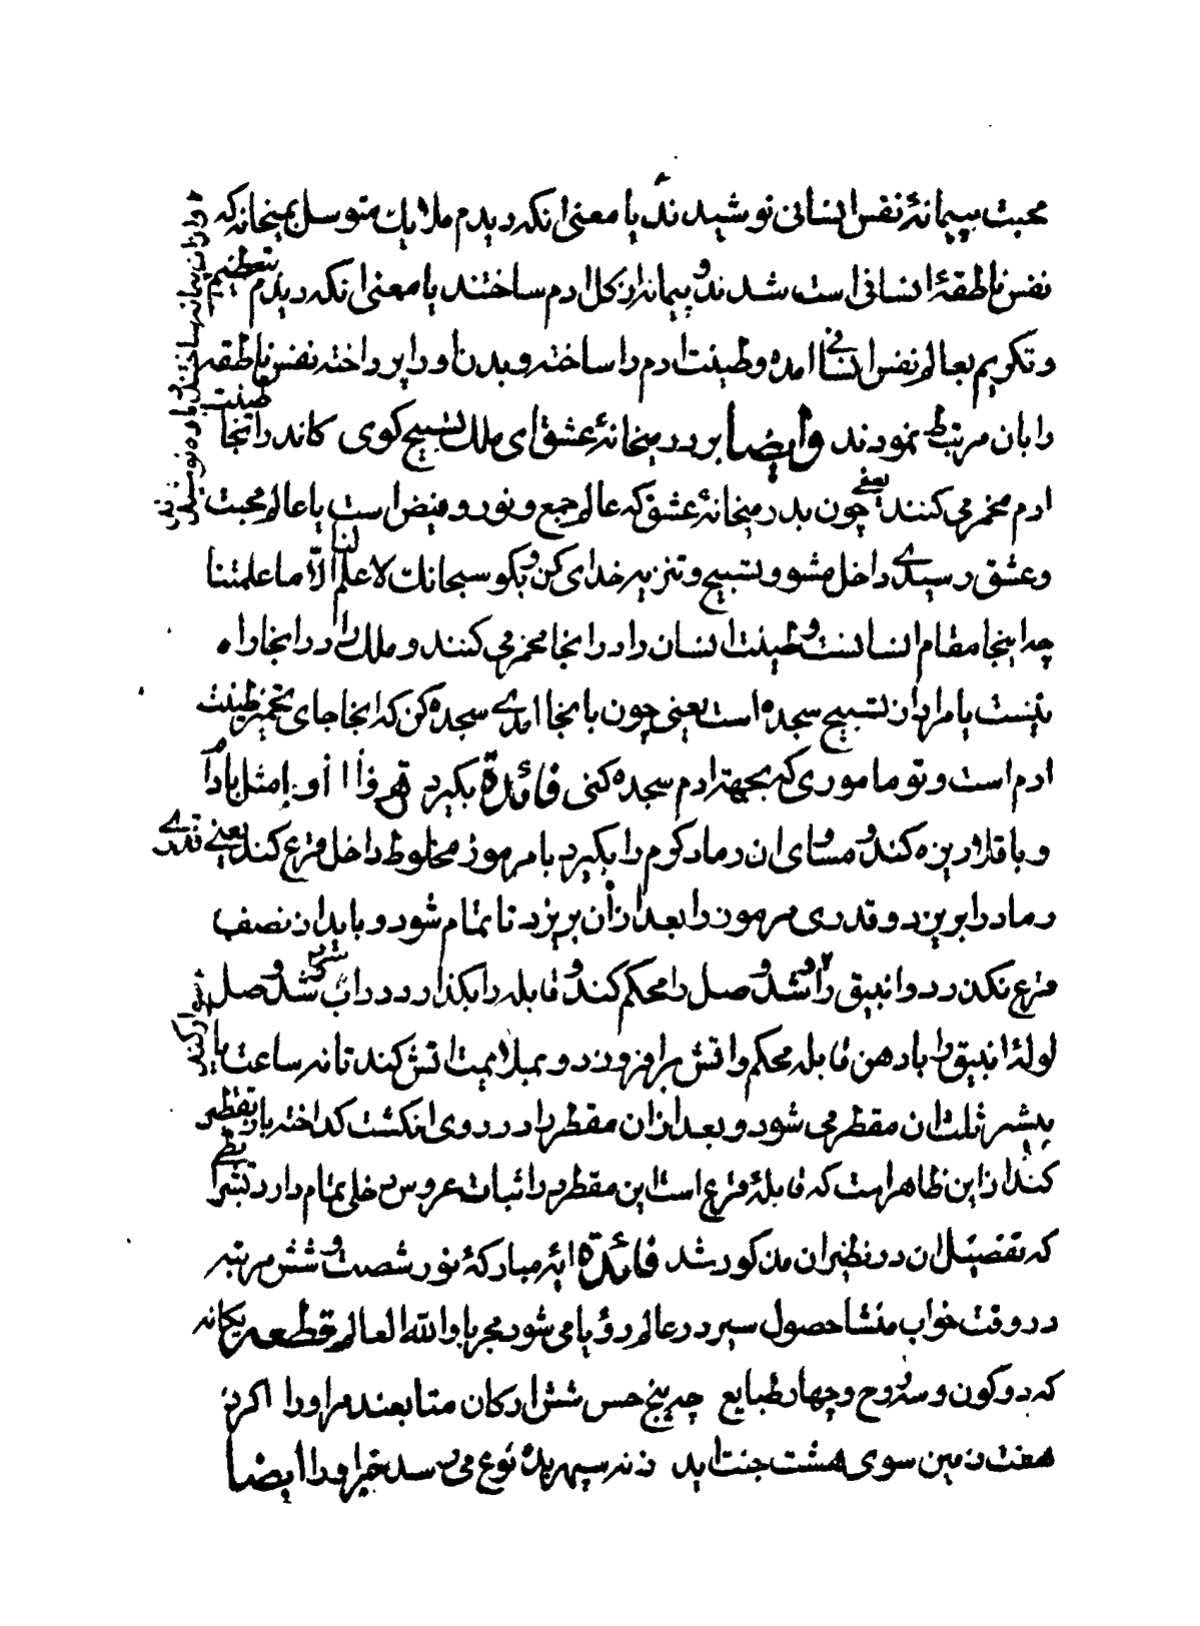 محبت پیمانهٔ نفس انسانی نوشیدند یا معنی انکه دیدم ملایك متوسل بمیخانه که
نفس ناطقهٔ انسانی است شدند و پیمانه از کل ادم ساختند یا معنی انکه دیدم بتعظیم
و تکریم بعالم نفس انسانی امده و طینت ادم را ساخته و بدن او را پرداخته نفس ناطقه
را بان مرتبط نمودند وایضا بر در میخانهٔ عشق ای ملك تسبیح کوی کاندر انجا طینت
ادم مخمر می کنند یعنی چون بدر میخانهٔ عشق که عالم جمع و نور و فیض است یا عالم محبت
و عشق رسیدے داخل مشو و تسبیح و تنزیه خدای کن و بکو سبحانك لا علم لنا الا ما علمتنا
چه اینجا مقام انسانست و طینت انسان را در انجا مخمر می کنند و ملك را در انجا راه
نیست یا مراد از تسبیح سجده است یعنی چون بانجا امدے سجده کن که انجا جای تخمیر طینت
ادم است و تو ماموری که بجهة ادم سجده کنی فائدة بکیرد
و باقلا ریزه کند و مساوی ان رماد کرم را بکیرد با مرموز مخلوط داخل قرع کند یعنی قدرے
رماد را بریزد و قدری مرموز را بعد از آن بریزد تا تمام شود و باید از نصف
قرع نکذرد و انبیق را و وصل را محکم کند و قابله را بکذارد در آب و وصل
لولهٔ انبیق را با دهن قابله محکم و اتش برافروزد و بملایمت اتش کند تا نه ساعت یا
بیشتر ثلث ان مقطر می شود و بعد از ان مقطر را در روی انکشت کداخته باز تقطیر
کند از این ظاهر است که قابلهٔ قرع است این مقطر در اثبات عروس دخلی تمام دارد بشرطی
که تفصیل ان در نظیر ان مذکور شد فائدة ایهٔ مبارکهٔ نور شصت و شش مرتبه
در وقت خواب منشا حصول سیر در عالم رؤیا می شود مجربا والله العالم قطعه یکانه
که دو کون و سه روح و چهار طبایع چه پنج حس شش ارکان متابعند مر او را اکر ز
هفت زمین سوی هشت جنت اید ز نه سپهر بده نوع می رسد خبر او را ایضا
و از ان پیمانه ساختند و باده نوشیدند
سوار کند